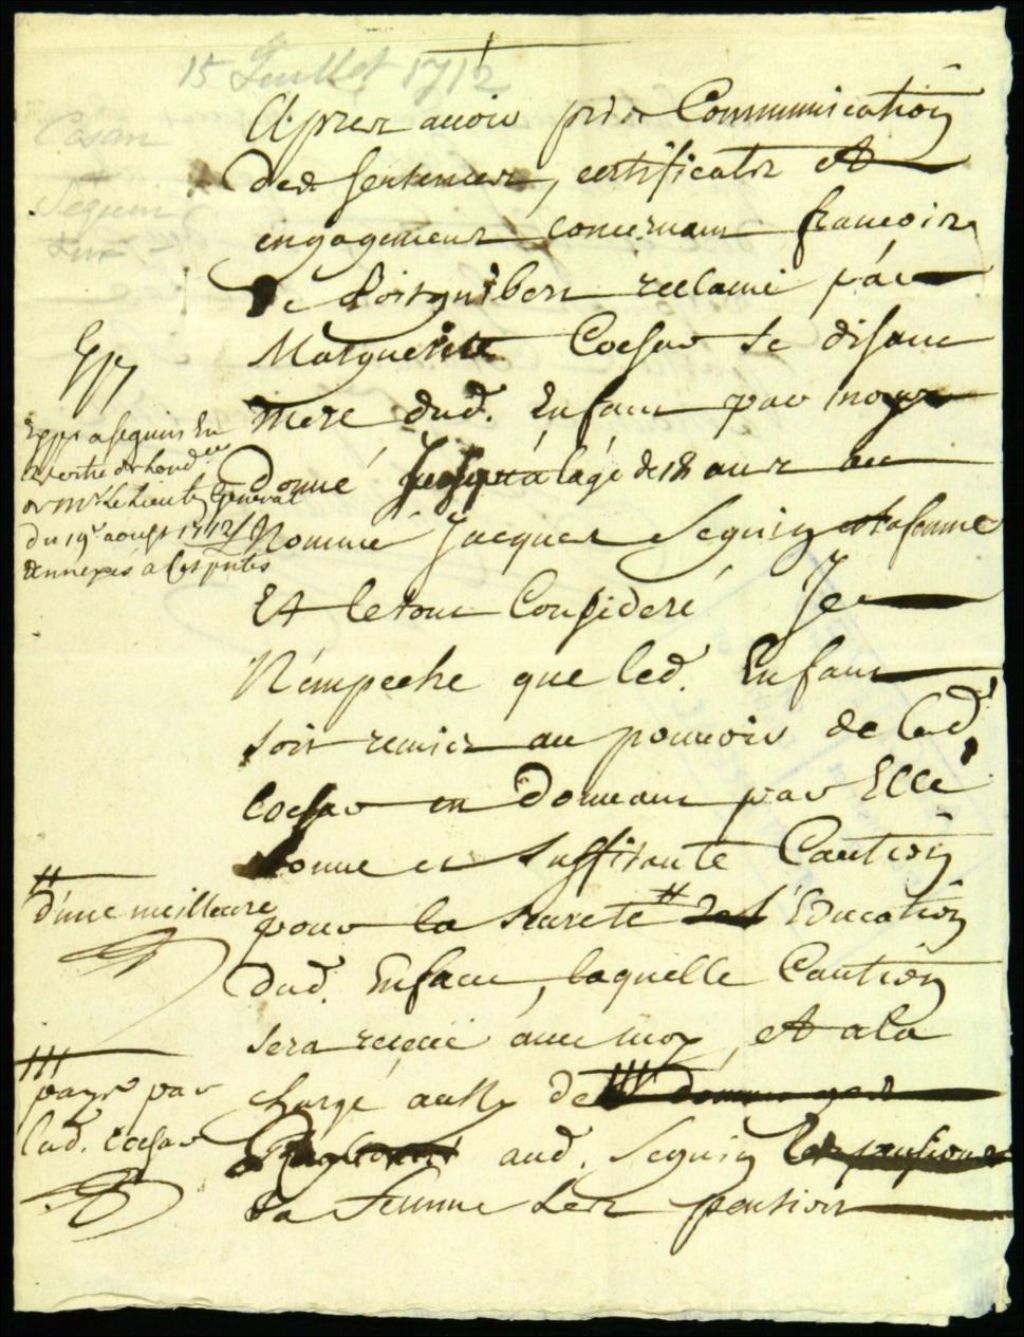 15 Juillet 1712
Cosan
Seguin
Apres avoir pris Communication
des Sentences, certificatz Et
engagemens concernans francois
de reclamé par
Marguerite Cochar se disant
mere dud. Enfant par nous
Donné Jusqu'a lage de 18 ans au
Nommé Jacques Seguin et sa femme
Et letout Consideré Je
N'empeche que led. Enfant
soit remis au pouvoir de lad.
Cochar en Donnant par Elle
bonne et suffisante Caution
pour la seureté # de l'Education
dud. Enfant, laquelle Caution
sera receue avec moy, et a la
charge de
aud. Seguin
sa femme les pension
Exp
Exp a Seguin En
vertu de lord
de Mr Le Lieut General
du 19e aoust 1712
annexés a ces pntes
#
d'une meilleure
payer par
lad. Cochar